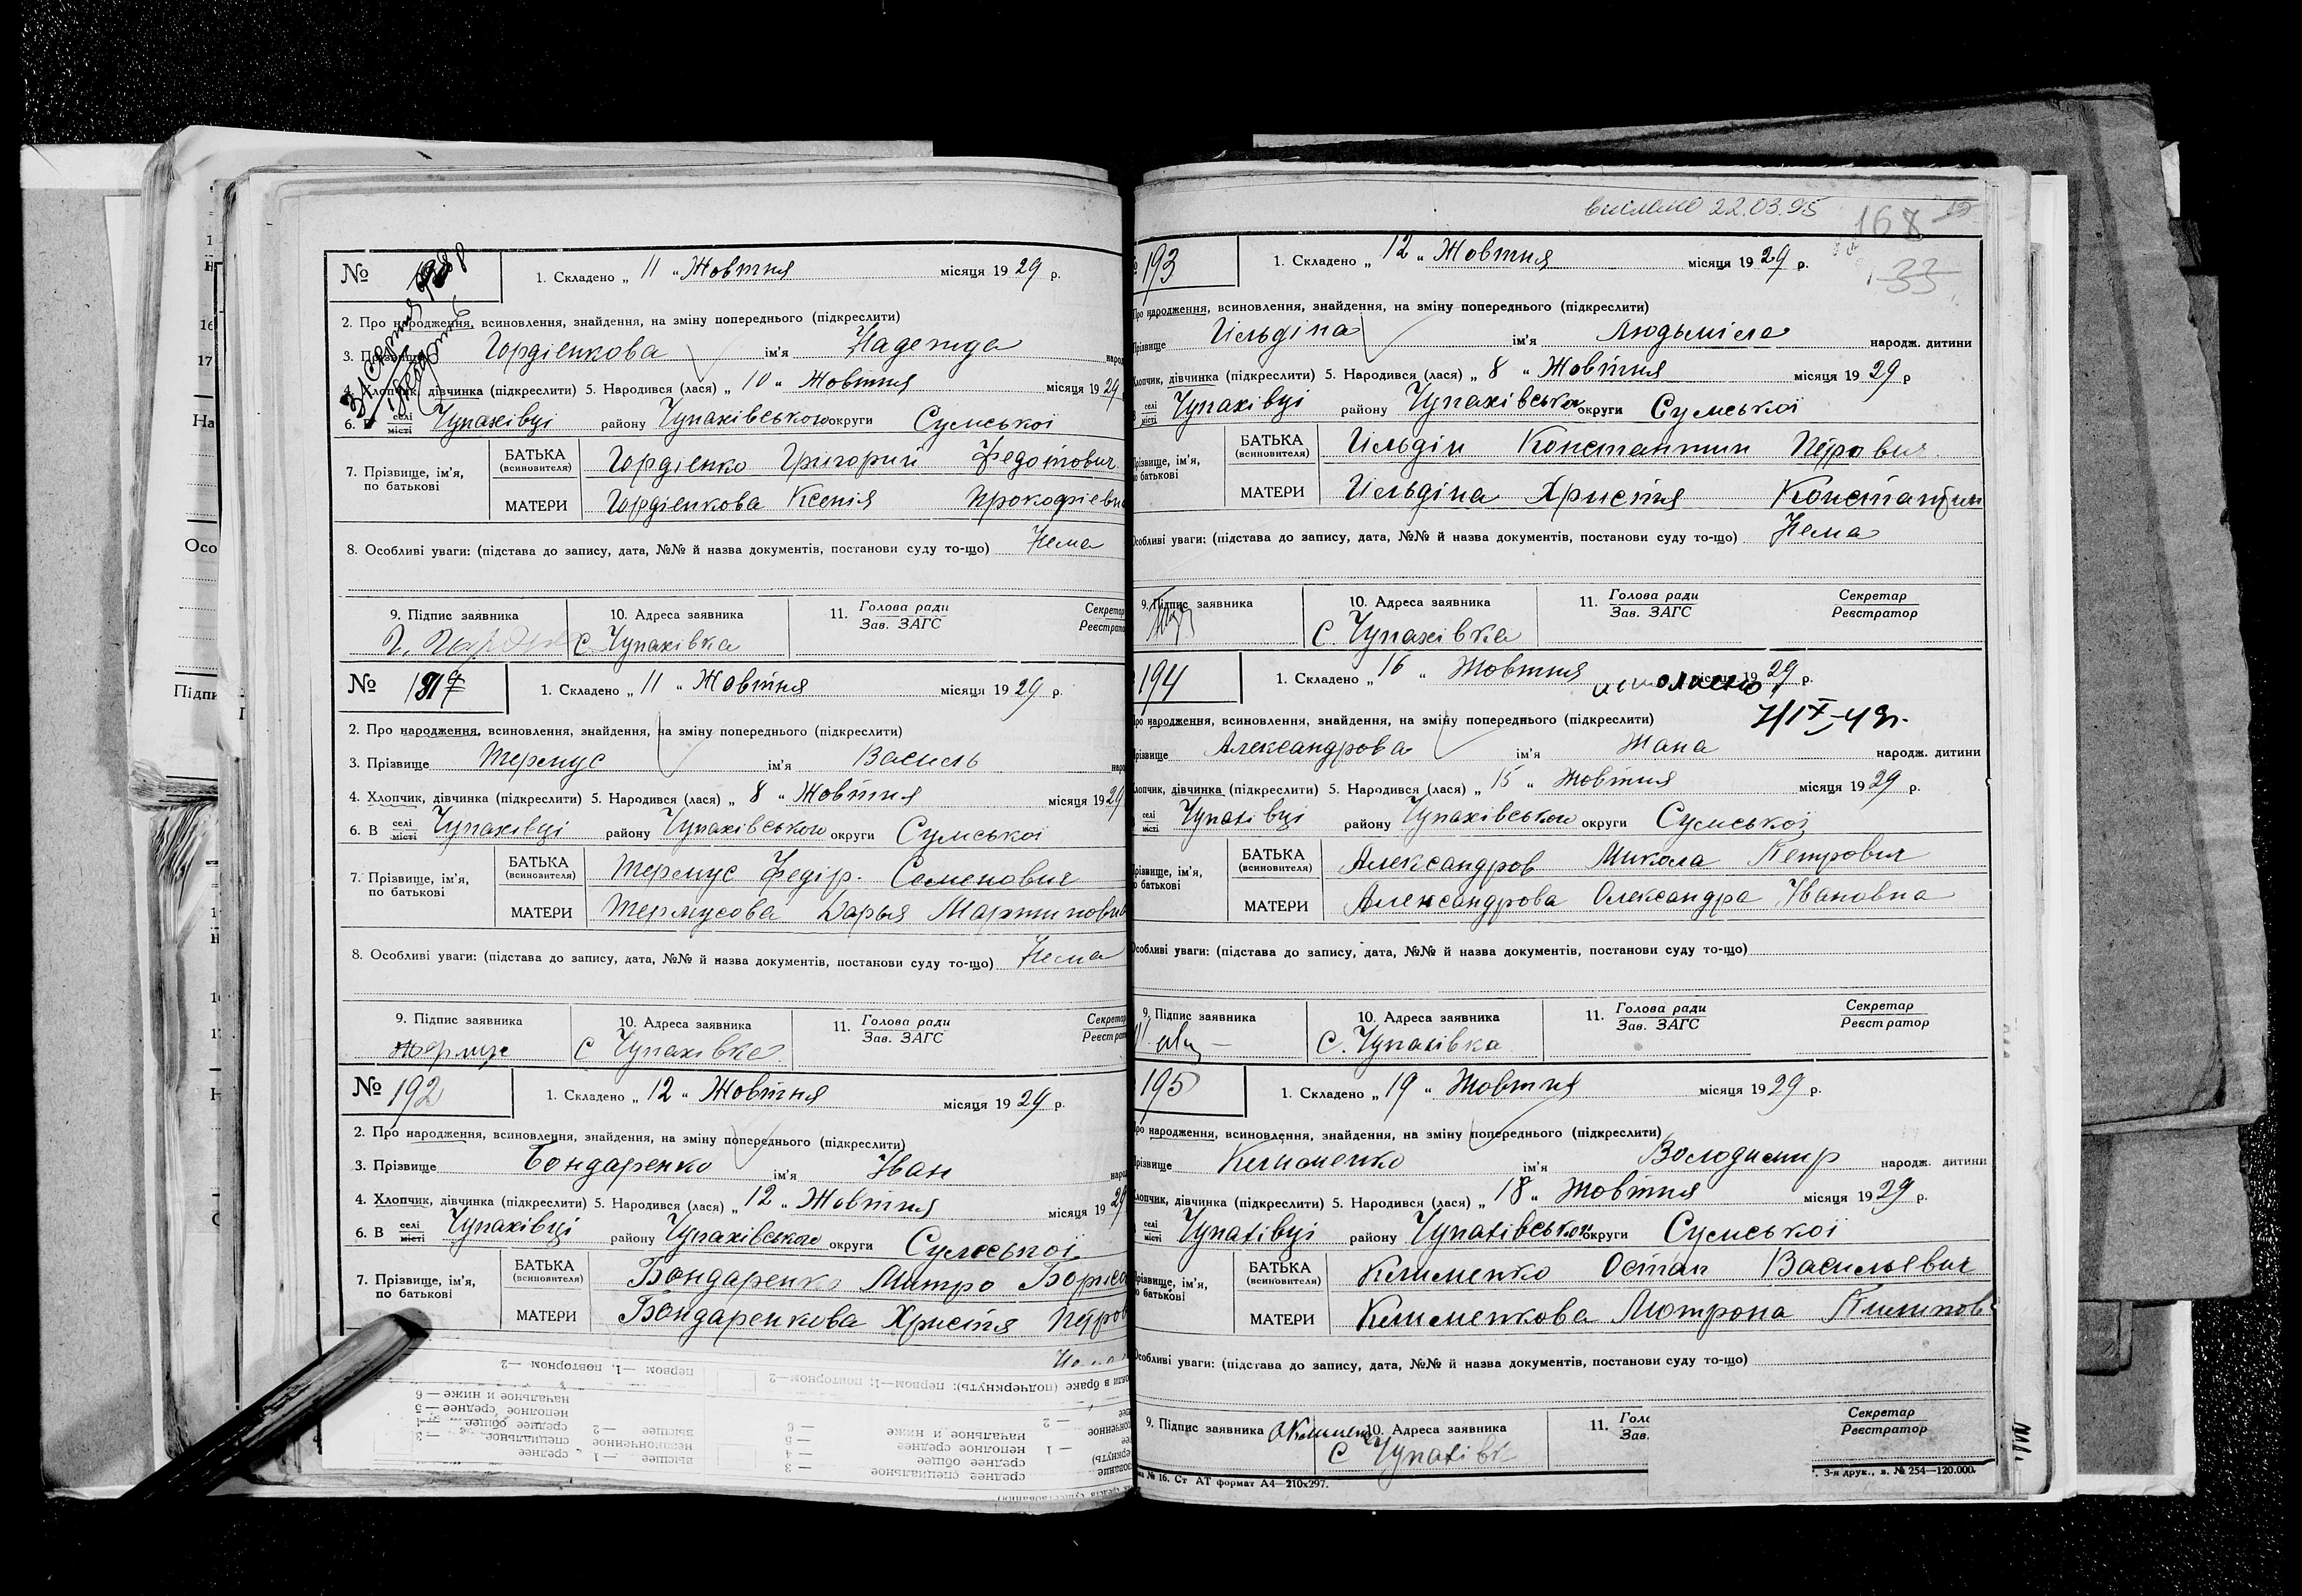 №
1. Складено „ 11 " Жовтня місяця 1929 р.
2. Про народження, всиновлення, знайдення, на зміну попереднього (підкреслити)
3. Прізвище Гордіенкова ім'я Надежда народ
4. Хлопчик, дівчинка (підкреслити) 5. Народився (лася) „ 10 " Жовтня місяця 1929
6. В селі місті Чупахівці району Чупахівського округи Сумської
7. Прізвище, ім'я, по батькові
БАТЬКА (всиновителя) Гордіенко Григорий Федотович
МАТЕРИ Гордіенкова Ксенія Прокофіевн
8. Особливі уваги: (підстава до запису, дата, №№ й назва документів, постанови суду то-що) Нема
9. Підпис заявника 10. Адреса заявника 11. Голова ради Зав. ЗАГС Секретар Реєстратo
С Чупахівка
№ 191
1. Складено „ 11 " Жовтня місяця 1929 р.
2. Про народження, всиновлення, знайдення, на зміну попереднього (підкреслити)
3. Прізвище Термус ім'я Василь наро
4. Хлопчик, дівчинка (підкреслити) 5. Народився (лася) „ 8 " Жовтня місяця 1929
6. В селі місті Чупахівці району Чупахівського округи Сумської
7. Прізвище, ім'я, по батькові
БАТЬКА (всиновителя) Термус Федір Семенович
МАТЕРИ Термусова Дарья Мартиновн
8. Особливі уваги: (підстава до запису, дата, №№ й назва документів, постанови суду то-що) Нема
9. Підпис заявника 10. Адреса заявника 11. Голова ради Зав. ЗАГС Секретар Реєстрат
Термус С Чупахівка
№ 192
1. Складено „ 12 " Жовтня місяця 1929 р.
2. Про народження, всиновлення, знайдення, на зміну попереднього (підкреслити)
3. Прізвище Бондаренко ім'я Іван наро
4. Хлопчик, дівчинка (підкреслити) 5. Народився (лася) „ 12 " Жовтня місяця 1929
6. В селі місті Чупахівці району Чупахівського округи Сумської
7. Прізвище, ім'я, по батькові
БАТЬКА (всиновителя) Бондаренко Митро Борисо
МАТЕРИ Бондаренкова Христя Петров
первом —1, повторном —2
яли в браке (подчеркнуть): первом—1; повторном—2
высшее —1
среднее специальное —3
среднее общее —4
неполное среднее —5
начальное и ниже —6
22.03.95
168
33
193
1. Складено „ 12 " Жовтня місяця 1929 р.
Про народження, всиновлення, знайдення, на зміну попереднього (підкреслити)
Прізвище Ільдіна ім'я Людьміла народж. дитини
Хлопчик, дівчинка (підкреслити) 5. Народився (лася) „ 8 " Жовтня місяця 1929 р
селі місті Чупахівці району Чупахівсько округи Сумської
Прізвище, ім'я, по батькові
БАТЬКА (всиновителя) Ільдін Константин Петрович
МАТЕРИ Ільдіна Христя Константин
Особливі уваги: (підстава до запису, дата, №№ й назва документів, постанови суду то-що) Нема
9. Підпис заявника 10. Адреса заявника 11. Голова ради Зав. ЗАГС Секретар Реєстратор
С Чупахівка
194
1. Складено „ 16 " Жовтня місяця 1929 р.
Про народження, всиновлення, знайдення, на зміну попереднього (підкреслити)
Прізвище Александрова ім'я Жана народж. дитини
Хлопчик, дівчинка (підкреслити) 5. Народився (лася) „ 15 " Жовтня місяця 1929 р.
селі місті Чупахівці району Чупахівського округи Сумської
Прізвище, ім'я, по батькові
БАТЬКА (всиновителя) Александров Микола Петрович
МАТЕРИ Александрова Олександра Івановна
Особливі уваги: (підстава до запису, дата, №№ й назва документів, постанови суду то-що)
9. Підпис заявника 10. Адреса заявника 11. Голова ради Зав. ЗАГС Секретар Реєстратор
С. Чупахівка
195
1. Складено „ 19 " Жовтня місяця 1929 р.
Про народження, всиновлення, знайдення, на зміну попереднього (підкреслити)
Прізвище Клименко ім'я Володимир народж. дитини
Хлопчик, дівчинка (підкреслити) 5. Народився (лася) „ 18 " Жовтня місяця 1929 р.
селі місті Чупахівці району Чупахівського округи Сумської
Прізвище, ім'я, по батькові
БАТЬКА (всиновителя) Клименко Остап Васильевич
МАТЕРИ Клименкова Мотрона
Особливі уваги: (підстава до запису, дата, №№ й назва документів, постанови суду то-що)
9. Підпис заявника 10. Адреса заявника 11. Голо Зав. Секретар Реєстратор
С Чупахівк
№ 16. Ст АТ формат А4—210х297.
3-я друк., в. № 254—120.000.